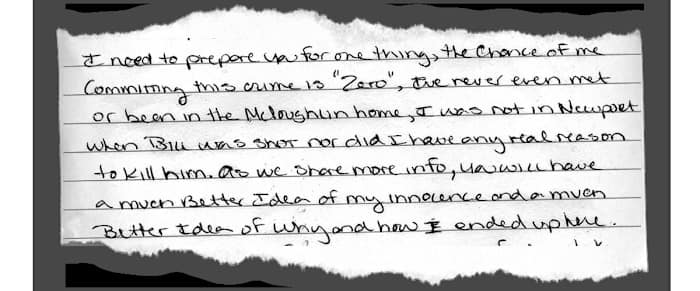 I need to prepare you for one thing, the Chance of me
Committing this crime is "Zero", I've never even met
or been in the Mcloughlin home, I was not in Newport
when Bill was shot nor did I have any real reason
to kill him. as we share more info, you will have
a much Better Idea of my innocence and a much
Better Idea of why and how I ended up here.